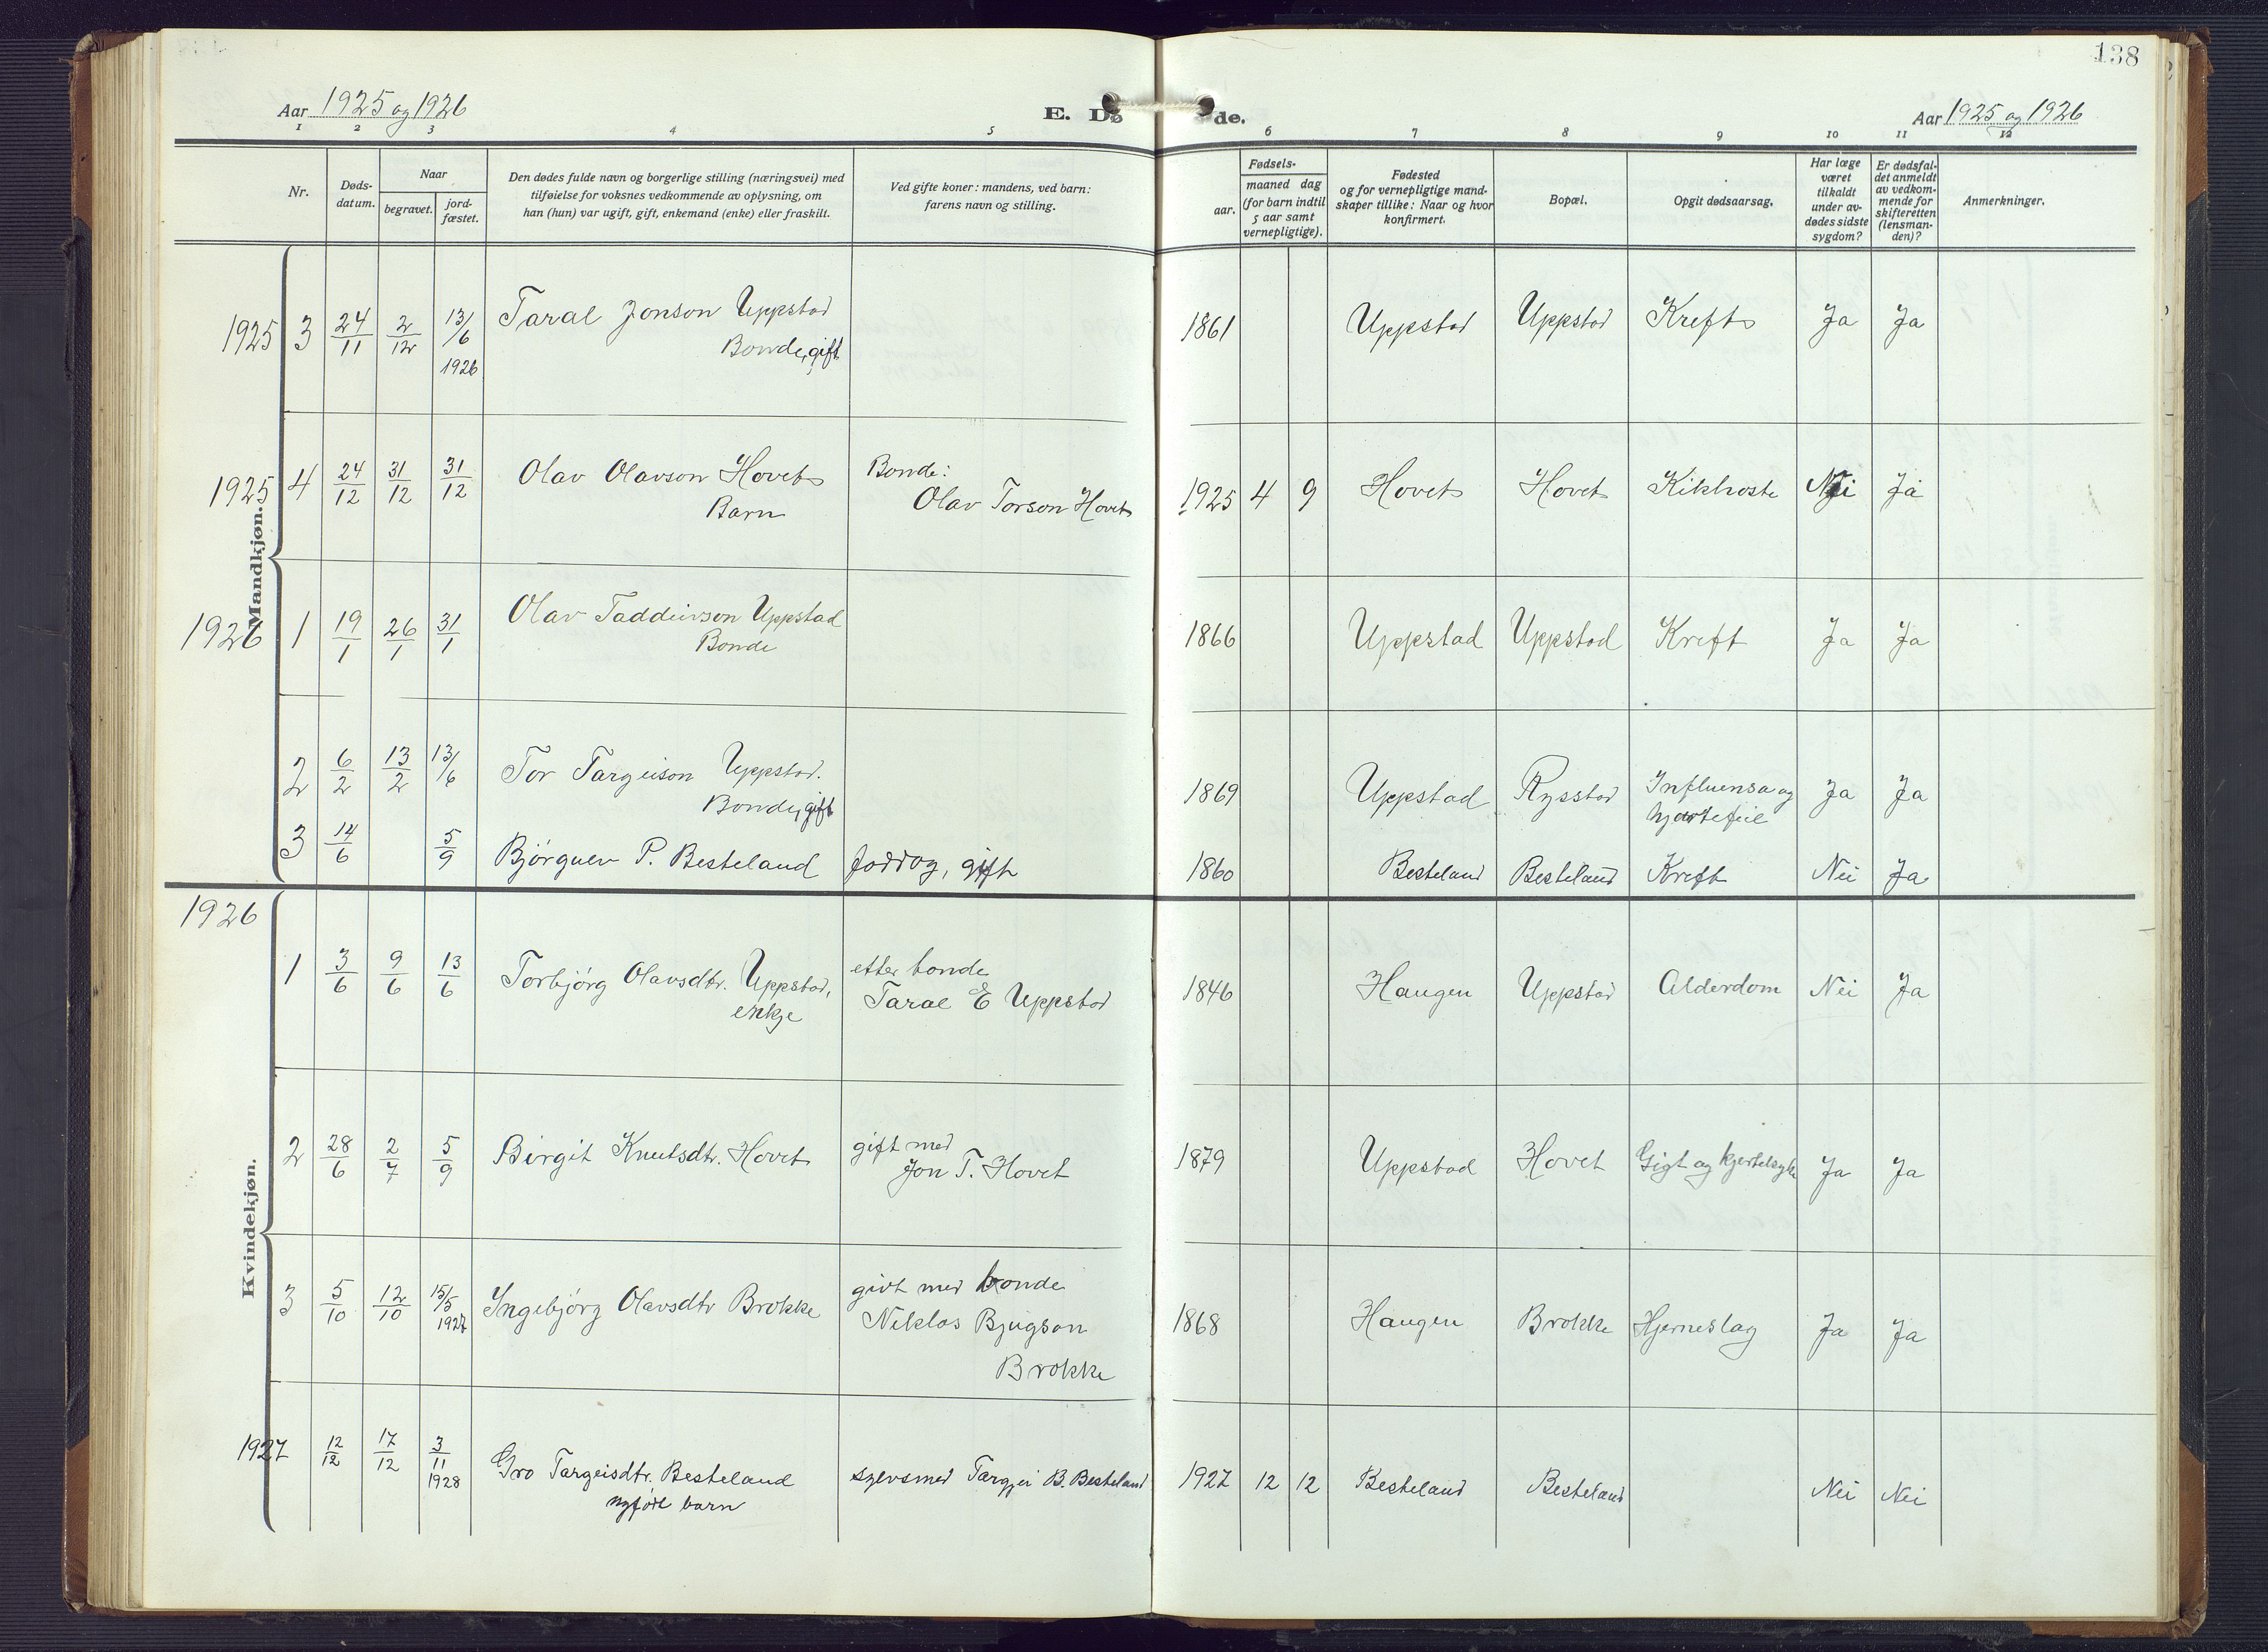 138
Aar 1925 og 1926
E. Dø
de.
Aar 1925 og 1926
1 2 3 4 5 6 7 8 9 10 11 12
Nr.
Døds-
datum.
Naar
begravet.
jord-
fæstet.
Den dødes fulde navn og borgerlige stilling (næringsvei) med
tilføielse for voksnes vedkommende av oplysning, om
han (hun) var ugift, gift, enkemand (enke) eller fraskilt.
Ved gifte koner: mandens, ved barn:
farens navn og stilling.
Fødsels-
aar.
maaned dag
(for barn indtil
5 aar samt
vernepligtige).
Fødested
og for vernepligtige mand-
skaper tillike: Naar og hvor
konfirmert.
Bopæl.
Opgit dødsaarsag.
Har læge
været
tilkaldt
under av-
dødes sidste
sygdom?
Er dødsfal-
det anmeldt
av vedkom-
mende for
skifteretten
(lensman-
den)?
Anmerkninger.
Mandkjøn.
1925 3 24/11 2/12 13/6 1926 Taral Jonson Uppstad 1861 Uppstad Uppstad Kreft Ja Ja
Bonde, gift
1925 4 24/12 31/12 31/12 Olav Olavson Hovet Bonde: 1925 4 9 Hovet Hovet Kikhoste Nei Ja
Barn Olav Torson Hovet
1926 1 19/1 26/1 31/1 Olav Taddeivson Uppstad 1866 Uppstad Uppstad Kreft Ja Ja
Bonde
2 6/2 13/2 13/6 Tor Targeison Uppstad. 1869 Uppstad Rysstad Influensa og Ja Ja
Bonde, gift hjartefeil
3 14/6 5/9 Bjørguv P. Besteland foddog, gift 1860 Besteland Besteland Kreft Nei Ja
Kvindekjøn.
1926
1 3/6 9/6 13/6 Torbjørg Olavsdtr. Uppstad, etter bonde 1846 Haugen Uppstad Alderdom Nei Ja
enkje Taral E Uppstad
2 28/6 2/7 5/9 Birgit Knutsdtr. Hovet gift med 1879 Uppstad Hovet Gigt og kjertelsyke Ja Ja
Jon T. Hovet
3 5/10 12/10 15/5 1927 Ingebjørg Olavsdtr Brokke givt med bonde 1868 Haugen Brokke Hjerneslag Ja Ja
Niklos Bjugson
Brokke
1927 12/12 17/12 3/11 1928 Gro Targeisdtr. Besteland sjevsmed Targjei B. Besteland 1927 12 12 Besteland Besteland Nei Nei
nyfødt barn